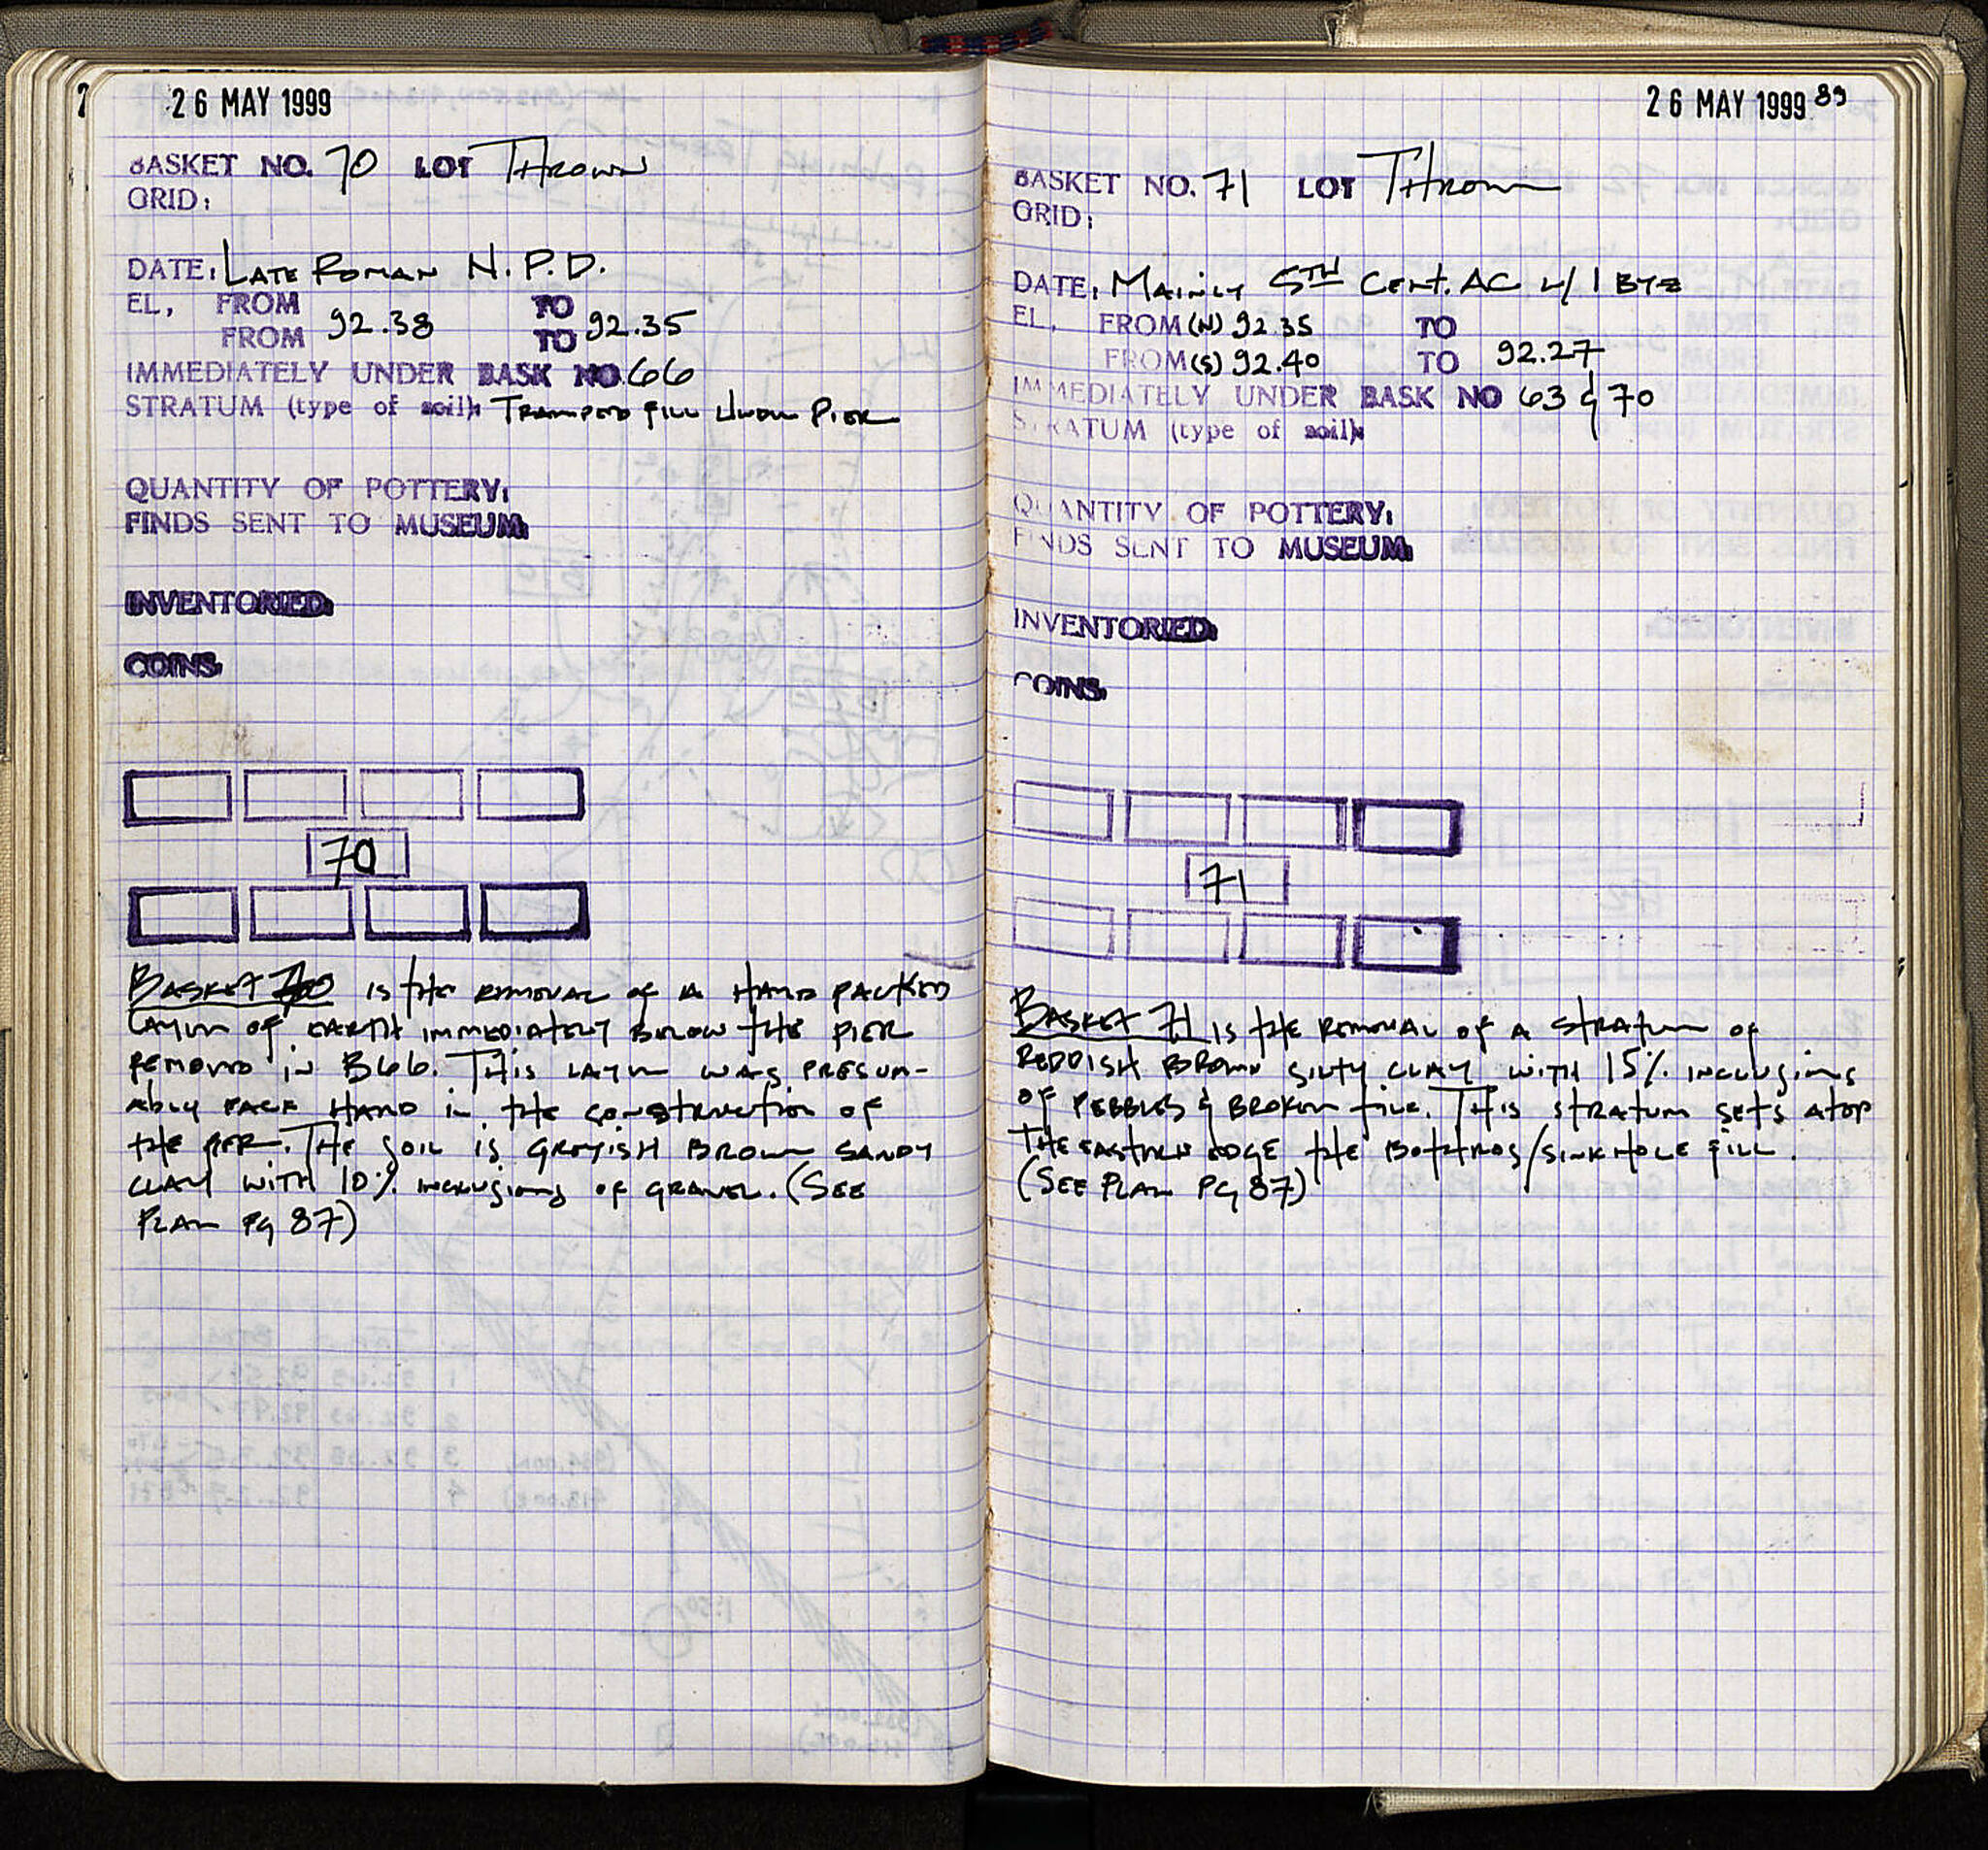 26 MAY 1999
BASKET NO. 70 LOT THROWN
GRID:
DATE: LATE ROMAN N.P.D.
EL, FROM TO
FROM 92.38 TO 92.35
IMMEDIATELY UNDER BASK NO. 66
STRATUM (type of soil): TRAMPED FILL UNDER PIER
QUANTITY OF POTTERY:
FINDS SENT TO MUSEUM:
INVENTORIED:
COINS:
70
BASKET 70 IS THE REMOVAL OF A HAND PACKED
LAYER OF EARTH IMMEDIATELY BELOW THE PIER
REMOVED IN B66. THIS LAYER WAS PRESUM-
ABLY PACK HAND IN THE CONSTRUCTION OF
THE PIER. THE SOIL IS GREYISH BROWN SANDY
CLAY WITH 10% INCLUSIONS OF GRAVEL. (SEE
PLAN PG 87)
26 MAY 1999 89
BASKET NO. 71 LOT THROWN
GRID:
DATE: MAINLY 5TH CENT. AC W/ 1 BYZ
EL, FROM (N) 92.35 TO
FROM (S) 92.40 TO 92.27
IMMEDIATELY UNDER BASK NO 63 & 70
STRATUM (type of soil):
QUANTITY OF POTTERY:
FINDS SENT TO MUSEUM:
INVENTORIED:
COINS:
71
BASKET 71 IS THE REMOVAL OF A STRATUM OF
REDDISH BROWN SILTY CLAY WITH 15% INCLUSIONS
OF PEBBLES & BROKEN TILE. THIS STRATUM SETS ATOP
THE EASTERN EDGE THE BOTHROS/SINKHOLE FILL.
(SEE PLAN PG 87)